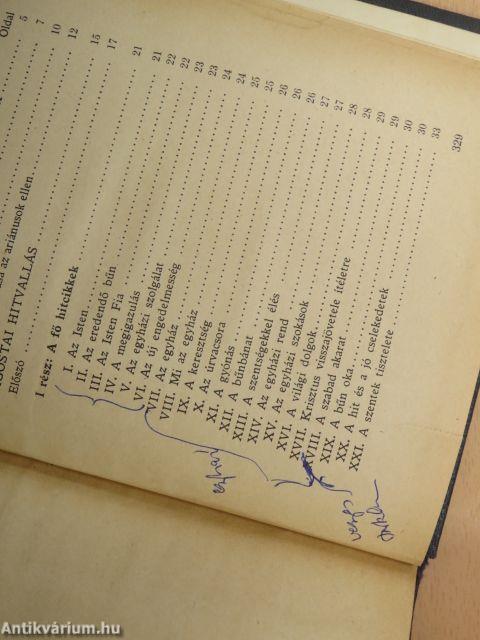 Oldal
5
7
10
12
15
17
21
21
22
22
23
23
24
24
25
25
26
26
26
27
27
28
28
29
29
30
30
33
329
az ariánusok ellen
OSTAI HITVALLÁS
Előszó
I rész: A fő hitcikkek
I. Az Isten
II. Az eredendő bűn
III. Az Isten Fia
IV. A megigazulás
V. Az egyházi szolgálat
VI. Az új engedelmesség
VII. Az egyház
VIII. Mi az egyház
IX. A keresztség
X. Az úrvacsora
XI. A gyónás
XII. A bűnbánat
XIII. A szentségekkel élés
XIV. Az egyházi rend
XV. Az egyházi szokások
XVI. A világi dolgok
XVII. Krisztus visszajövetele ítéletre
XVIII. A szabad akarat
XIX. A bűn oka
XX. A hit és a jó cselekedetek
XXI. A szentek tisztelete
Antikvárium.hu